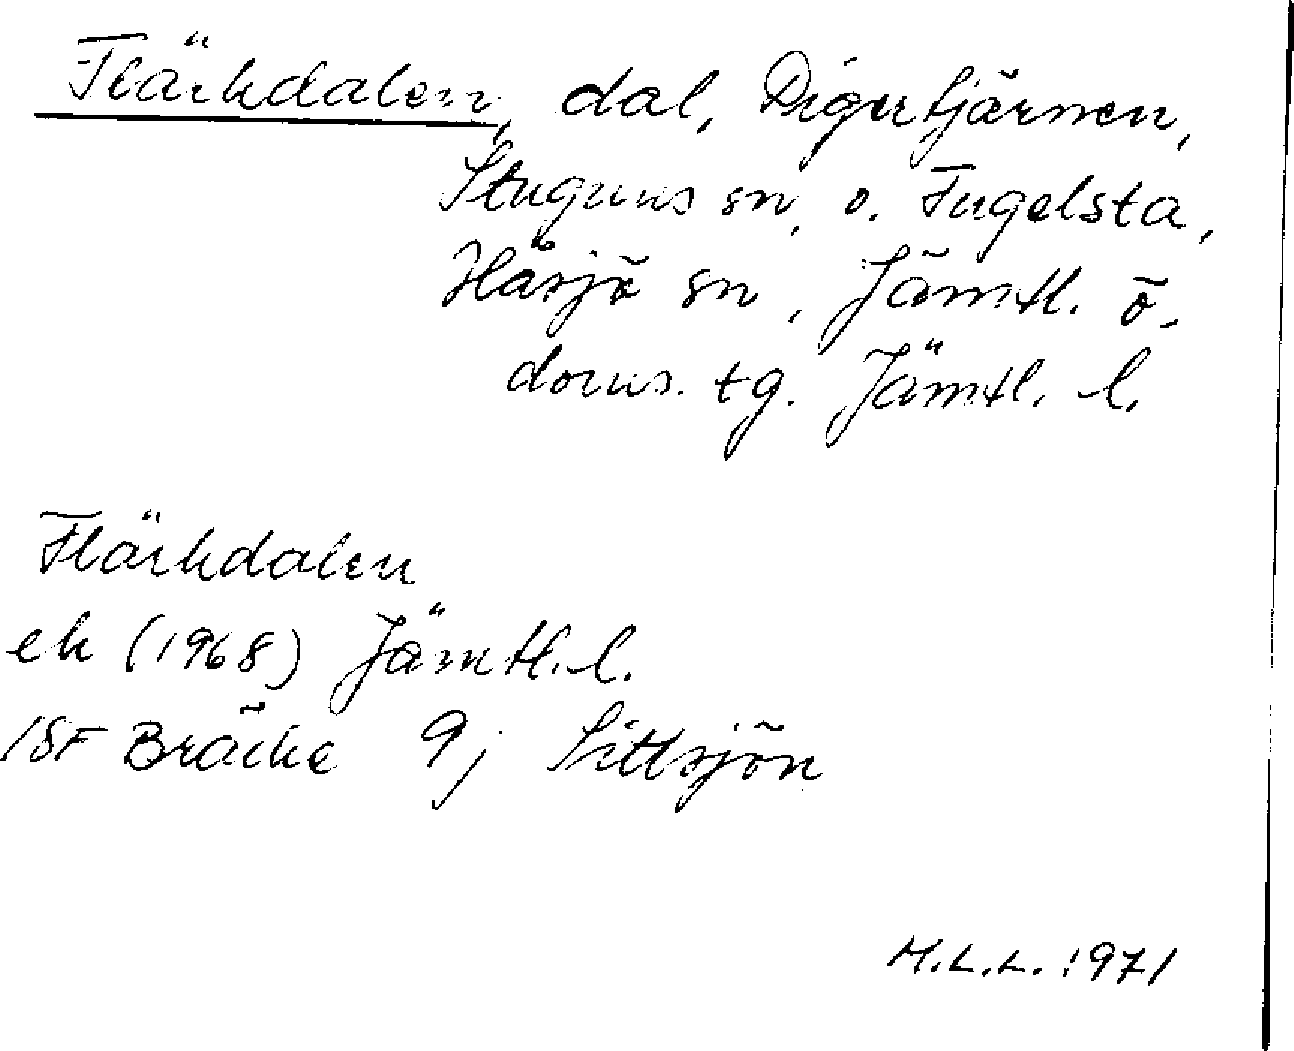 Flärkdalen, dal, Digertjärnen,
Stuguns sn, o. Fugelsta,
Häsjö sn, Jämtl. ö.
doms. tg. Jämtl. l.
Flärkdalen
ek (1968) Jämtl. l.
18F Bräcke 9j Sittsjön
M.L.L. 1971